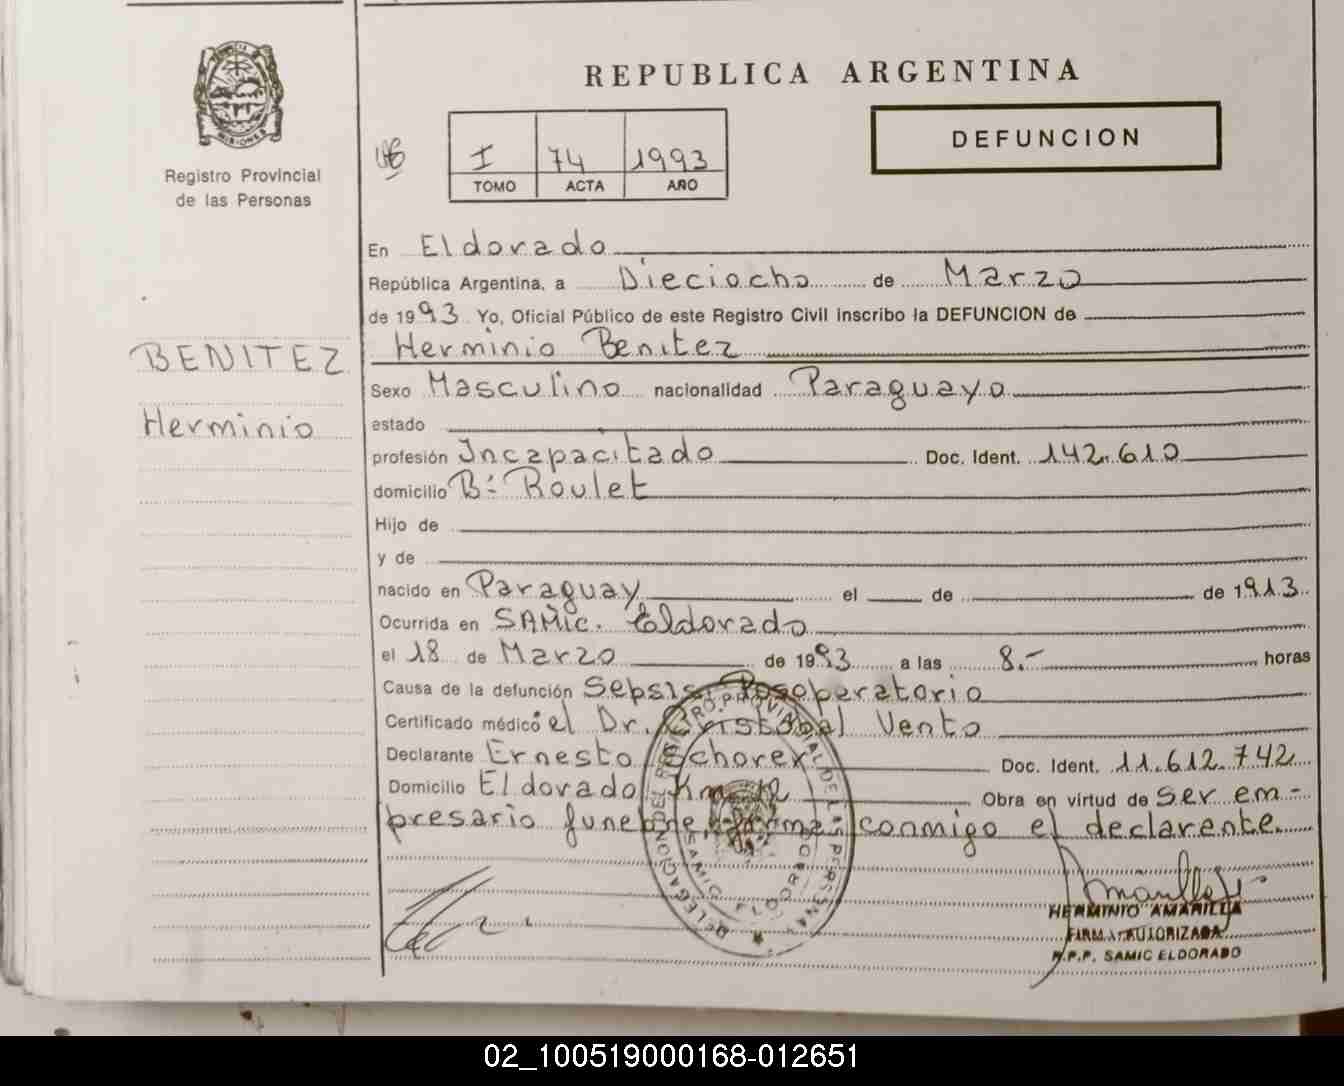 REPUBLICA ARGENTINA
PROVINCIA
MISIONES
Registro Provincial
de las Personas
I 74 1993
TOMO ACTA AÑO
DEFUNCION
BENITEZ
Herminio
En Eldorado
República Argentina, a Dieciocho de Marzo
de 1993 Yo, Oficial Público de este Registro Civil inscribo la DEFUNCION de
Herminio Benitez
Sexo Masculino nacionalidad Paraguayo
estado
profesión Incapacitado Doc. Ident. 142.610
domicilio Bº Roulet
Hijo de
y de
nacido en Paraguay el de de 1913
Ocurrida en SAMic. Eldorado
el 18 de Marzo de 1993 a las 8.- horas
Causa de la defunción Sepsis Posoperatorio
Certificado médico el Dr. Cristobal Vento
Declarante Ernesto Schorer Doc. Ident. 11.612.742
Domicilio Eldorado Km 12 Obra en virtud de ser em-
presario funebre, firma conmigo el declarente.
DELEGACION DEL REGISTRO PROVINCIAL DE LAS PERSONAS
SAMIC ELDORADO
HERMINIO AMARILLA
FIRMA AUTORIZADA
R.P.P. SAMIC ELDORADO
02_100519000168-012651